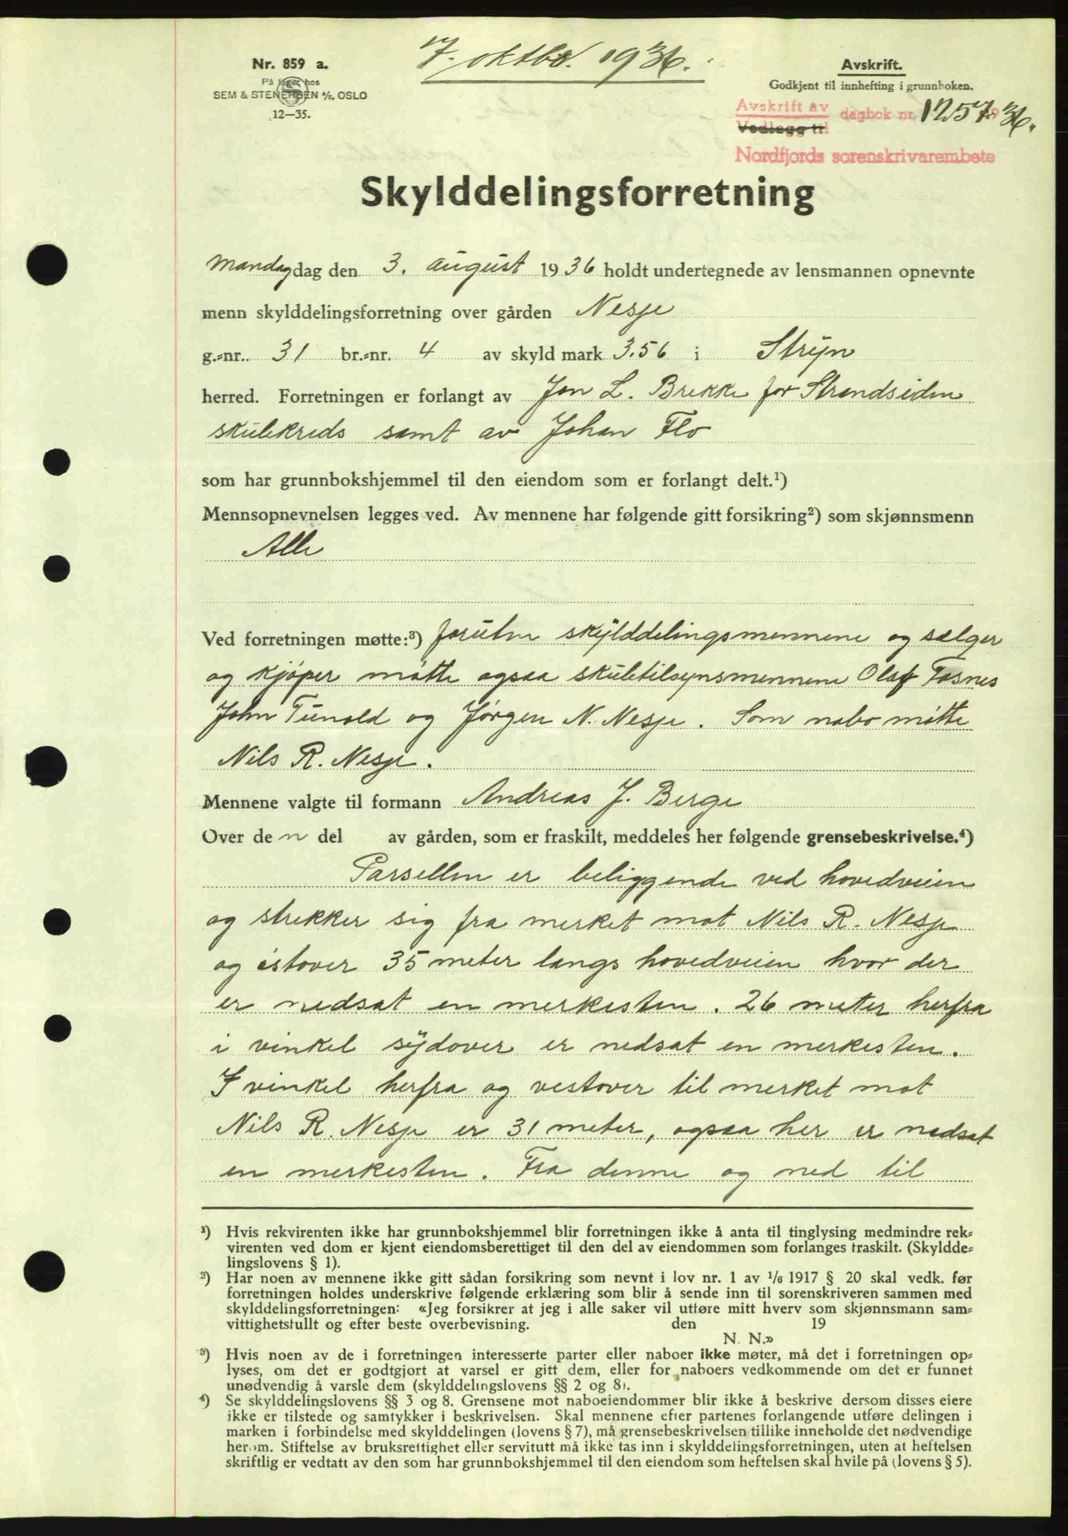 7. oktbr. 1936.
Nr. 859 a.
På lager hos
SEM & STENERSEN A/S, OSLO
12—35.
Avskrift.
Godkjent til innhefting i grunnboken.
Avskrift av
Vedlegg til
dagbok nr. 1257 - 36.
Nordfjords sorenskrivarembete
Skylddelingsforretning
Mandagdag den 3. august 1936 holdt undertegnede av lensmannen opnevnte
menn skylddelingsforretning over gården Nesje
g.-nr. 31 br.-nr. 4 av skyld mark 3.56 i Stryn
herred. Forretningen er forlangt av Jon L. Brekke for Strandsiden
skulekreds samt av Johan Flo
som har grunnbokshjemmel til den eiendom som er forlangt delt.¹)
Mennsopnevnelsen legges ved. Av mennene har følgende gitt forsikring²) som skjønnsmenn
Alle
Ved forretningen møtte:³) foruten skylddelingsmennene og sælger
og kjøper møtte ogsaa skuletilsynsmennene Olaf Tosnes
John Tunold og Jørgen N. Nesje. Som nabo møtte
Nils R. Nesje.
Mennene valgte til formann Andreas J. Berge
Over den del av gården, som er fraskilt, meddeles her følgende grensebeskrivelse.⁴)
Parsellen er beliggende ved hovedveien
og strekker sig fra merket mot Nils R. Nesje
og østover 35 meter langs hovedveien hvor der
er nedsat en merkesten. 26 meter herfra
i vinkel sydover er nedsat en merkesten.
I vinkel herfra og vestover til merket mot
Nils R. Nesje er 31 meter, ogsaa her er nedsat
en merkesten. Fra denne og ned til
¹) Hvis rekvirenten ikke har grunnbokshjemmel blir forretningen ikke å anta til tinglysing medmindre rek-
virenten ved dom er kjent eiendomsberettiget til den del av eiendommen som forlanges fraskilt. (Skyldde-
lingslovens § 1).
²) Har noen av mennene ikke gitt sådan forsikring som nevnt i lov nr. 1 av 1/6 1917 § 20 skal vedk. før
forretningen holdes underskrive følgende erklæring som blir å sende inn til sorenskriveren sammen med
skylddelingsforretningen: «Jeg forsikrer at jeg i alle saker vil utføre mitt hverv som skjønnsmann sam-
vittighetsfullt og efter beste overbevisning. den 19
N. N.»
³) Hvis noen av de i forretningen interesserte parter eller naboer ikke møter, må det i forretningen op-
lyses, om det er godtgjort at varsel er gitt dem, eller for naboers vedkommende om det er funnet
unødvendig å varsle dem (skylddelingslovens §§ 2 og 8).
⁴) Se skylddelingslovens §§ 3 og 8. Grensene mot naboeiendommer blir ikke å beskrive dersom disses eiere
ikke er tilstede og samtykker i beskrivelsen. Skal mennene efter partenes forlangende utføre delingen i
marken i forbindelse med skylddelingen (lovens § 7), må grensebeskrivelsen tillike inneholde det nødvendige
herom. Stiftelse av bruksrettighet eller servitutt må ikke tas inn i skylddelingsforretningen, uten at heftelsen
skriftlig er vedtatt av den som har grunnbokshjemmel til den eiendom som heftelsen skal hvile på (lovens § 5).